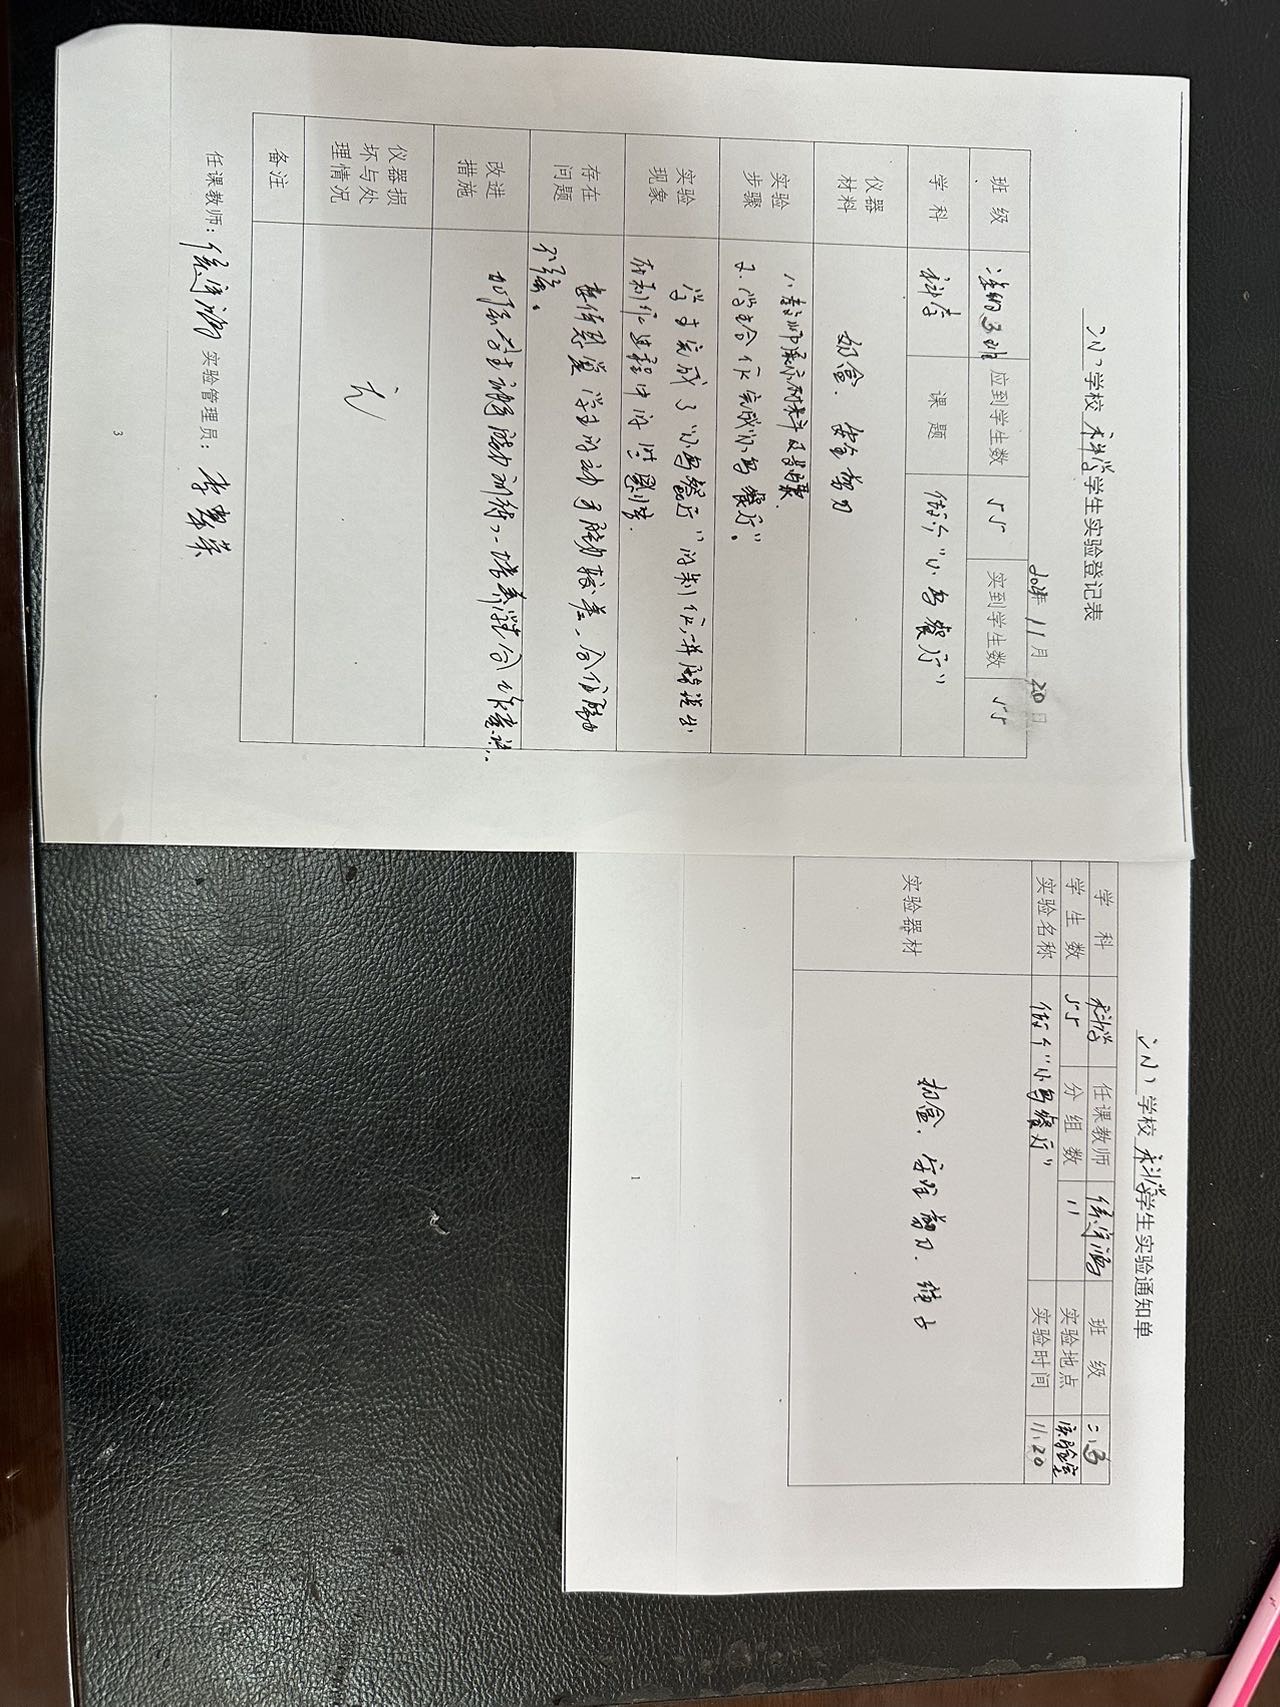 学校科学学生实验登记表
11月20日
班级 3班 应到学生数 55 实到学生数 55
学科 科学 课题 做个“小鸟餐厅”
仪器材料 奶盒、安全剪刀
实验步骤 1、教师展示材料及步骤.
2、学生合作完成“小鸟餐厅”。
实验现象 学生完成了“小鸟餐厅”的制作,并能说出
在制作过程中的
存在问题 学生的动手能力较差、合作能力
不强。
改进措施 加强学生动手能力训练、培养学生合作意识.
仪器损坏与处理情况 无
备注
任课教师: 实验管理员:
3
学校科学学生实验通知单
学科 科学 任课教师 班级 二.3
学生数 55 分组数 11 实验地点 实验室
实验名称 做个“小鸟餐厅” 实验时间 11.20
实验器材 奶盒、安全剪刀、
1